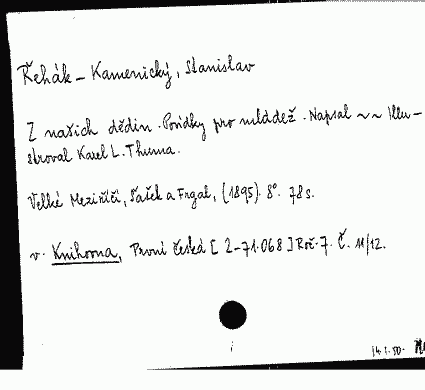 Řehák - Kamenický, Stanislav
Z našich dědin. Povídky pro mládež. Napsal ~~ Illu-
stroval Karel L. Thuma.
Velké Meziříčí, Šašek a Frgal, (1895). 8°. 78 s.
v. Knihovna, První česká [2-71.068] Roč. 7. Č. 11/12.
14.1.50.